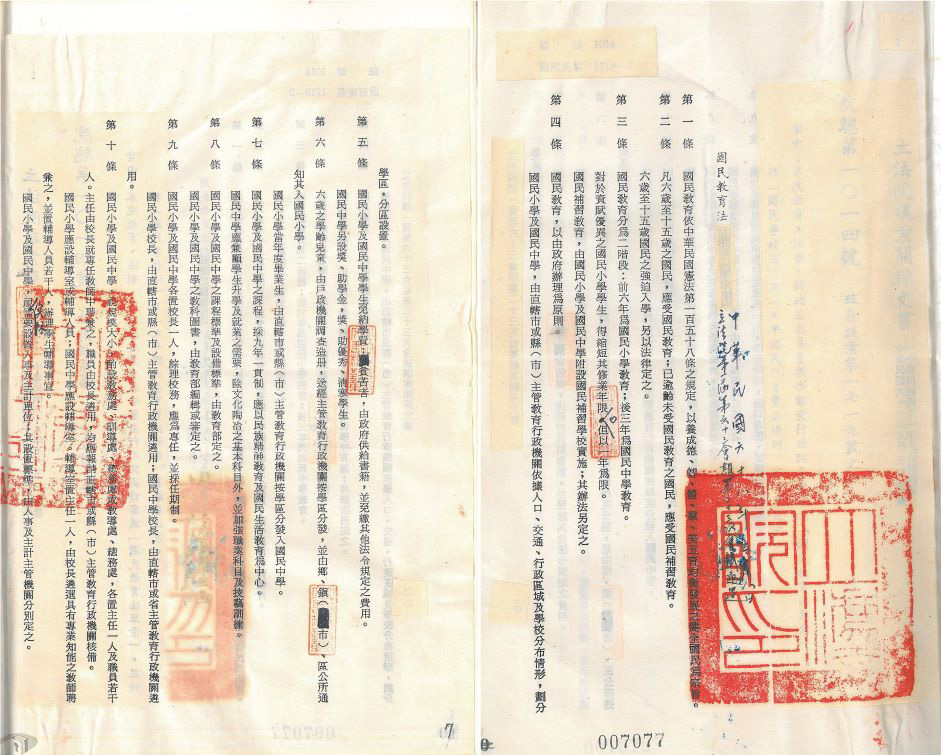 國民教育法
第一條 國民教育依中華民國憲法第一百五十八條之規定,以養成德、智、體、羣、美五育均衡發展之健全國民爲宗旨。
第二條 凡六歲至十五歲之國民,應受國民教育;已逾齡未受國民教育之國民,應受國民補習教育。
六歲至十五歲國民之強迫入學,另以法律定之。
第三條 國民教育分爲二階段:前六年爲國民小學教育;後三年爲國民中學教育。
對於資賦優異之國民小學學生,得縮短其修業年限。但以一年爲限。
國民補習教育,由國民小學及國民中學附設國民補習學校實施;其辦法另定之。
第四條 國民教育,以由政府辦理爲原則。
國民小學及國民中學,由直轄市或縣(市)主管教育行政機關依據人口、交通、行政區域及學校分布情形,劃分
學區,分區設置。
第五條 國民小學及國民中學學生免納學費;貧苦者,由政府供給書籍,並免繳其他法令規定之費用。
國民中學另設獎、助學金,獎、助優秀、清寒學生。
第六條 六歲之學齡兒童,由戶政機關調查造冊,送經主管教育行政機關按學區分發,並由鄉、鎮(市)、區公所通
知其入國民小學。
國民小學當年度畢業生,由直轄市或縣(市)主管教育行政機關按學區分發入國民中學。
第七條 國民小學及國民中學之課程,採九年一貫制,應以民族精神教育及國民生活教育爲中心。
國民中學應兼顧學生升學及就業之需要,除文化陶冶之基本科目外,並加強職業科目及技藝訓練。
第八條 國民小學及國民中學之課程標準及設備標準,由教育部定之。
國民小學及國民中學之教科圖書,由教育部編輯或審定之。
第九條 國民小學及國民中學各置校長一人,綜理校務,應爲專任,並採任期制。
國民小學校長,由直轄市或縣(市)主管教育行政機關遴用;國民中學校長,由直轄市或省主管教育行政機關遴
用。
第十條 國民小學及國民中學,規模大小,設教務處、訓導處、總務處或教導處、總務處,各置主任一人及職員若干
人。主任由校長就專任教師中聘兼之,職員由校長遴用,均應報請直轄市或縣(市)主管教育行政機關核備。
國民小學應設輔導室或輔導人員;國民中學應設輔導室。輔導室置主任一人,由校長遴選具有專業知能之教師聘
兼之,並置輔導人員若干人,辦理學生輔導事宜。
國民小學及國民中學,設置人事及主計單位,其設置標準,由人事及主計主管機關分別定之。
007077
7